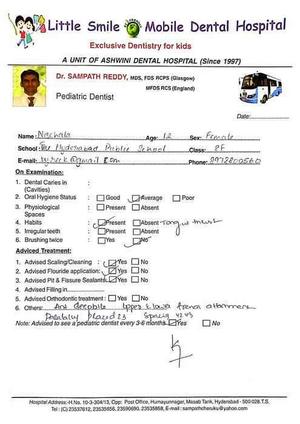 Little Smile Mobile Dental Hospital
Exclusive Dentistry for kids
A UNIT OF ASHWINI DENTAL HOSPITAL (Since 1997)
Dr. SAMPATH REDDY, MDS, FDS RCPS (Glasgow)
MFDS RCS (England)
Pediatric Dentist
Date:
Name: Age: 12 Sex: Female
School: The Hyderabad Public School Class:
E-mail: Phone:
On Examination:
1. Dental Caries in (Cavities) :
2. Oral Hygiene Status : Good Average Poor
3. Physiological Spaces : Present Absent
4. Habits : Present Absent Tongue thrust
5. Irregular teeth : Present Absent
6. Brushing twice : Yes No
Adviced Treatment:
1. Advised Scaling/Cleaning : Yes No
2. Advised Flouride application: Yes No
3. Advised Pit & Fissure Sealants Yes No
4. Advised Filling in
5. Advised Orthodontic treatment : Yes No
6. Others: Ant deepbite Upper & lower
placed 23 Spacing
Note: Advised to see a pediatric dentist every 3-6 months Yes No
Hospital Address:-H.No. 10-3-304/13, Opp: Post Office, Humayunnagar, Masab Tank, Hyderabad - 500 028 T.S.
Tel: (C) 23537612, 23535656, 23590690, 23535858, E-mail : sampathcheruku@yahoo.com